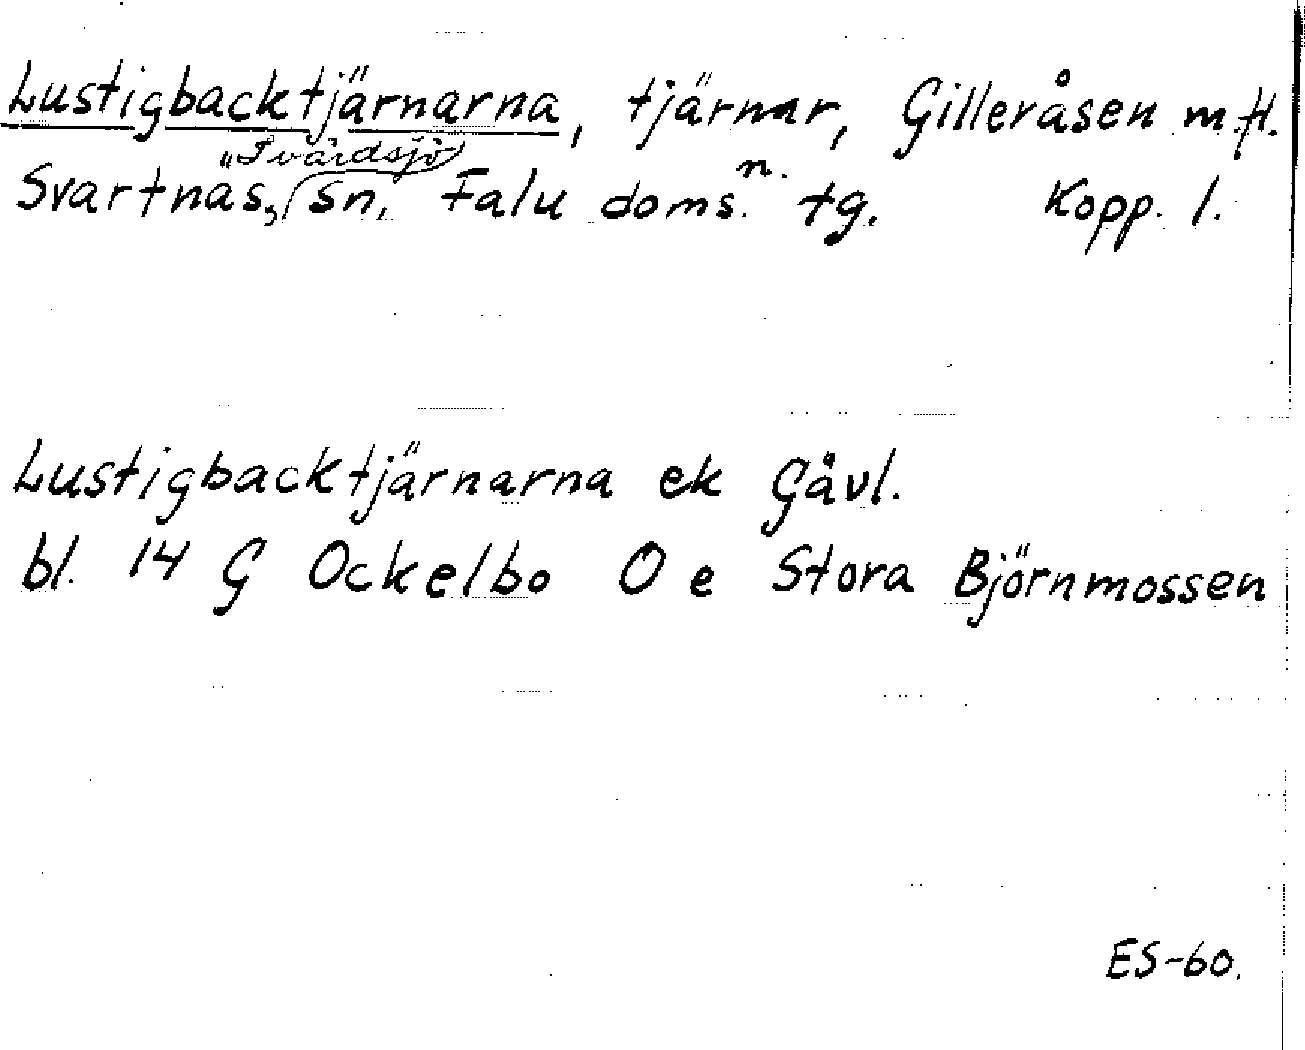 Lustigbacktjärnarna, tjärnar, Gilleråsen m.fl.
Svartnäs, Svärdsjö sn, Falu doms. n. tg. Kopp. l.
Lustigbacktjärnarna ek Gävl.
bl. 14 G Ockelbo O e Stora Björnmossen
ES-60.